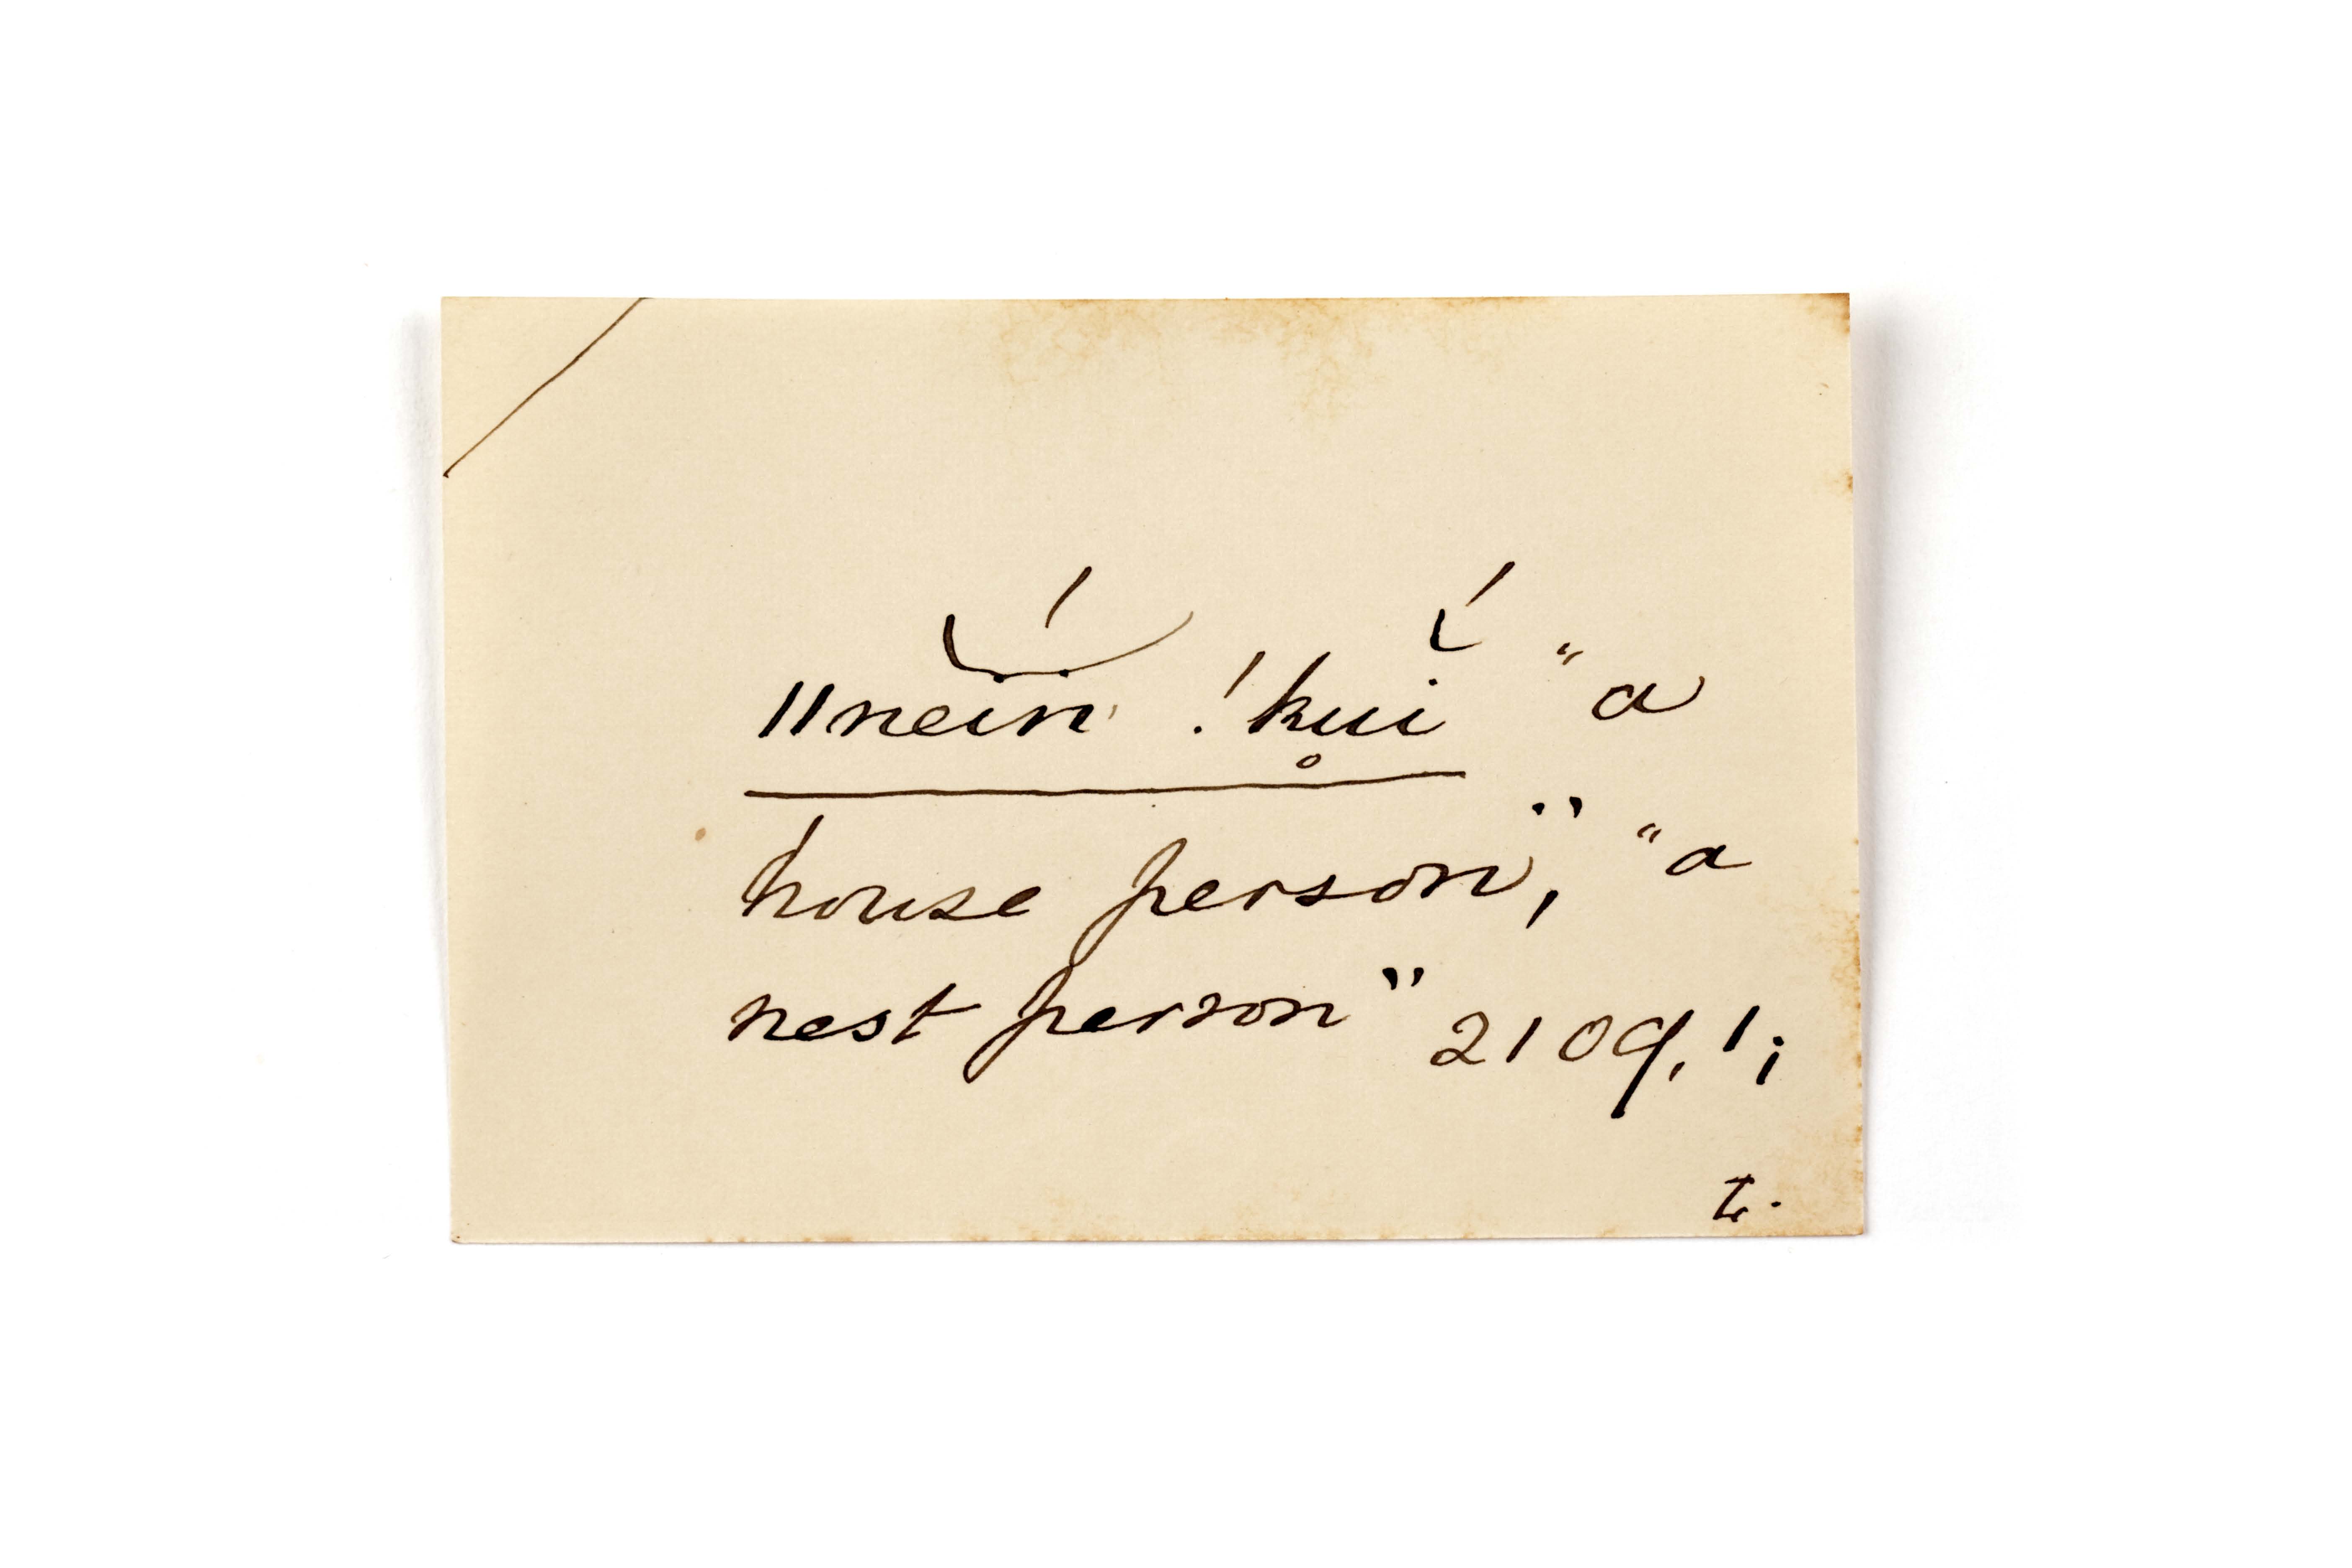 ǁnein !kui̥ "a
house person", "a
nest person" 2109, 1;